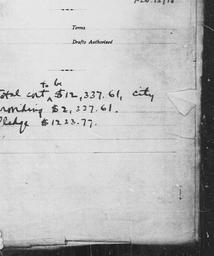 Terms
Drafts Authorized
to be
total cost ^ $12,337.61, city
providing $2,337.61.
Pledge $1233.77.